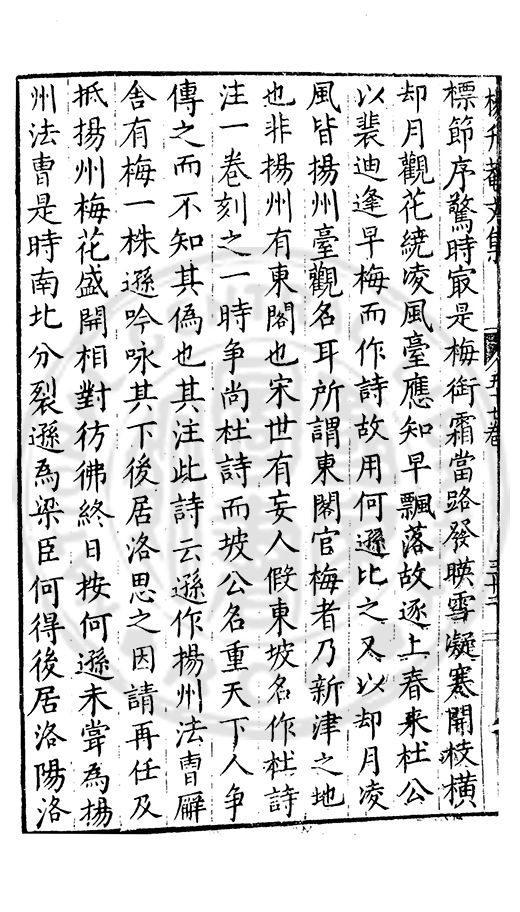 標節序驚時㝡是梅銜霜當路發暎雪凝寒開枝橫
却月觀花繞凌風臺應知早飄落故逐上春來杜公
以裴迪逢早梅而作詩故用何遜比之又以却月凌
風皆揚州臺觀名耳所謂東閣官梅者乃新津之地
也非揚州有東閣也宋世有妄人假東坡名作杜詩
注一卷刻之一時争尚杜詩而坡公名重天下人争
傳之而不知其偽也其注此詩云遜作揚州法曹廨
舍有梅一株遜吟咏其下後居洛思之因請再任及
抵揚州梅花盛開相對彷彿終日按何遜未嘗為揚
州法曹是時南北分裂遜為梁臣何得後居洛陽洛